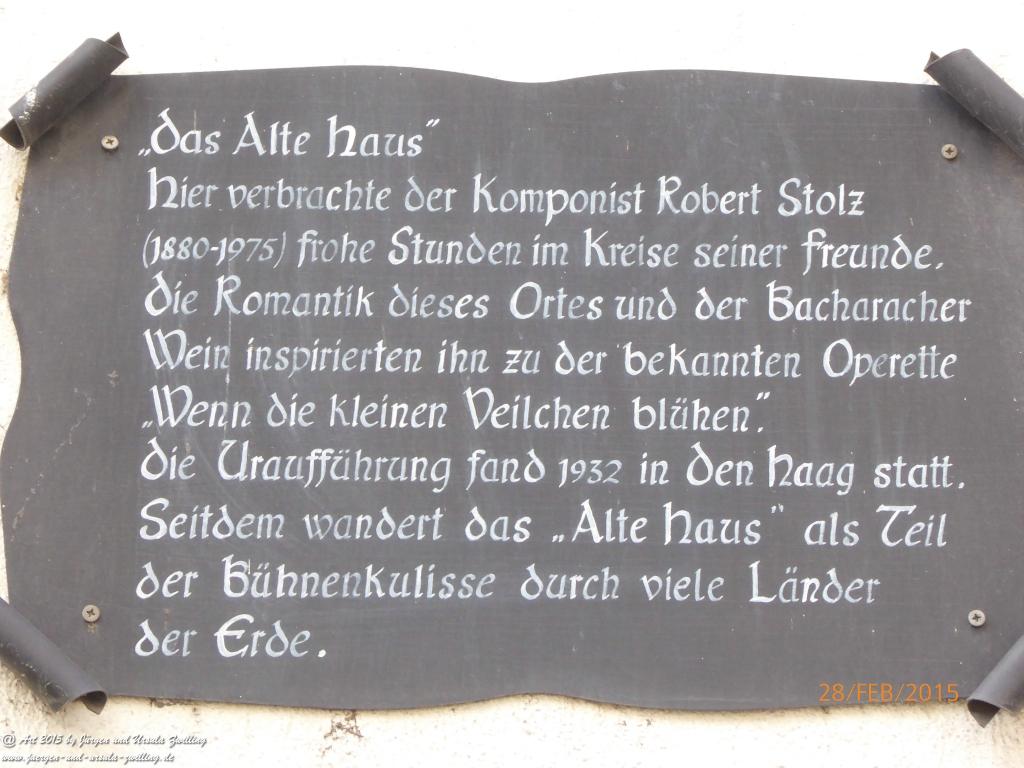 „Das Alte Haus”
Hier verbrachte der Komponist Robert Stolz
(1880-1975) frohe Stunden im Kreise seiner Freunde.
Die Romantik dieses Ortes und der Bacharacher
Wein inspirierten ihn zu der bekannten Operette
„Wenn die kleinen Veilchen blühen”.
Die Uraufführung fand 1932 in Den Haag statt.
Seitdem wandert das „Alte Haus” als Teil
der Bühnenkulisse durch viele Länder
der Erde.
28/FEB/2015
@ Art 2015 by Jürgen und Ursula Zwilling
www.juergen-und-ursula-zwilling.de